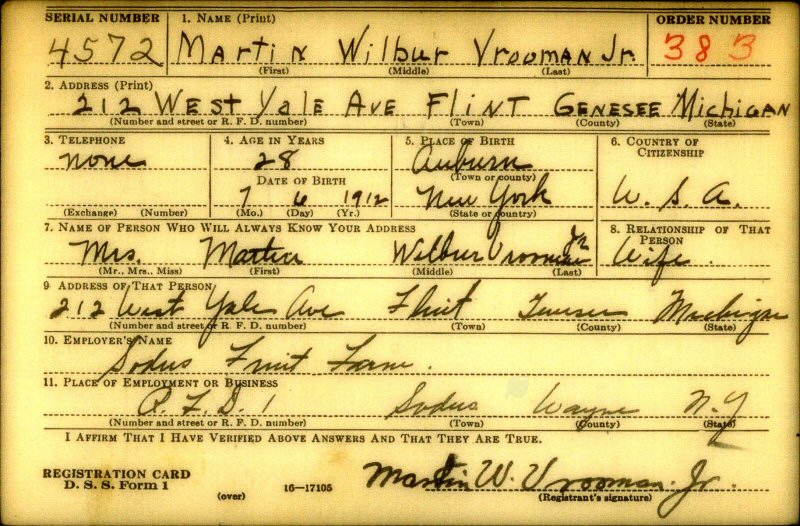 SERIAL NUMBER 1. NAME (Print) ORDER NUMBER
4572 MARTIN WILBUR VROOMAN Jr. 383
(First) (Middle) (Last)
2. ADDRESS (Print)
212 WEST YALE AVE FLINT GENESEE MICHIGAN
(Number and street or R. F. D. number) (Town) (County) (State)
3. TELEPHONE 4. AGE IN YEARS 5. PLACE OF BIRTH 6. COUNTRY OF CITIZENSHIP
none 28 Auburn
(Town or county)
DATE OF BIRTH
7 6 1912 New York U. S. A.
(Exchange) (Number) (Mo.) (Day) (Yr.) (State or country)
7. NAME OF PERSON WHO WILL ALWAYS KNOW YOUR ADDRESS 8. RELATIONSHIP OF THAT PERSON
Mrs. Martin Wilbur Vrooman Jr Wife.
(Mr., Mrs., Miss) (First) (Middle) (Last)
9. ADDRESS OF THAT PERSON
212 West Yale Ave Flint Genesee Michigan
(Number and street or R. F. D. number) (Town) (County) (State)
10. EMPLOYER'S NAME
Sodus Fruit Farm.
11. PLACE OF EMPLOYMENT OR BUSINESS
R. F. D. 1 Sodus Wayne N.Y
(Number and street or R. F. D. number) (Town) (County) (State)
I AFFIRM THAT I HAVE VERIFIED ABOVE ANSWERS AND THAT THEY ARE TRUE.
REGISTRATION CARD
D. S. S. Form 1
(over) 16—17105
Martin W. Vrooman. Jr.
(Registrant's signature)